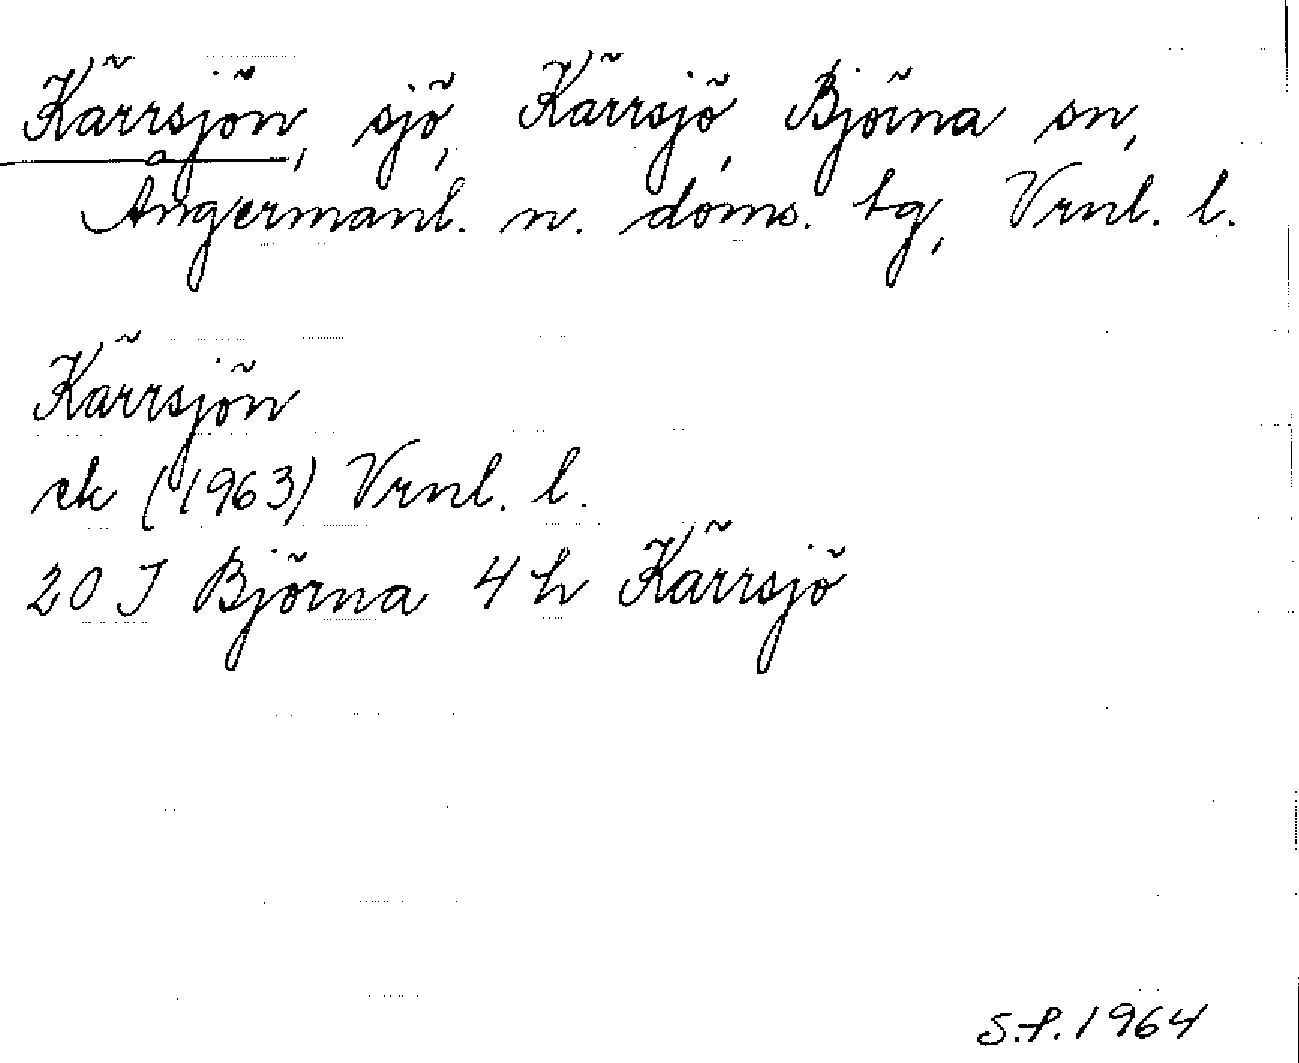 Kärrsjön, sjö, Kärrsjö, Björna sn,
Ångermanl. n. doms. tg, Vrnl. l.
Kärrsjön
ek (1963) Vrnl. l.
20 J Björna 4 h Kärrsjö
S.P. 1964